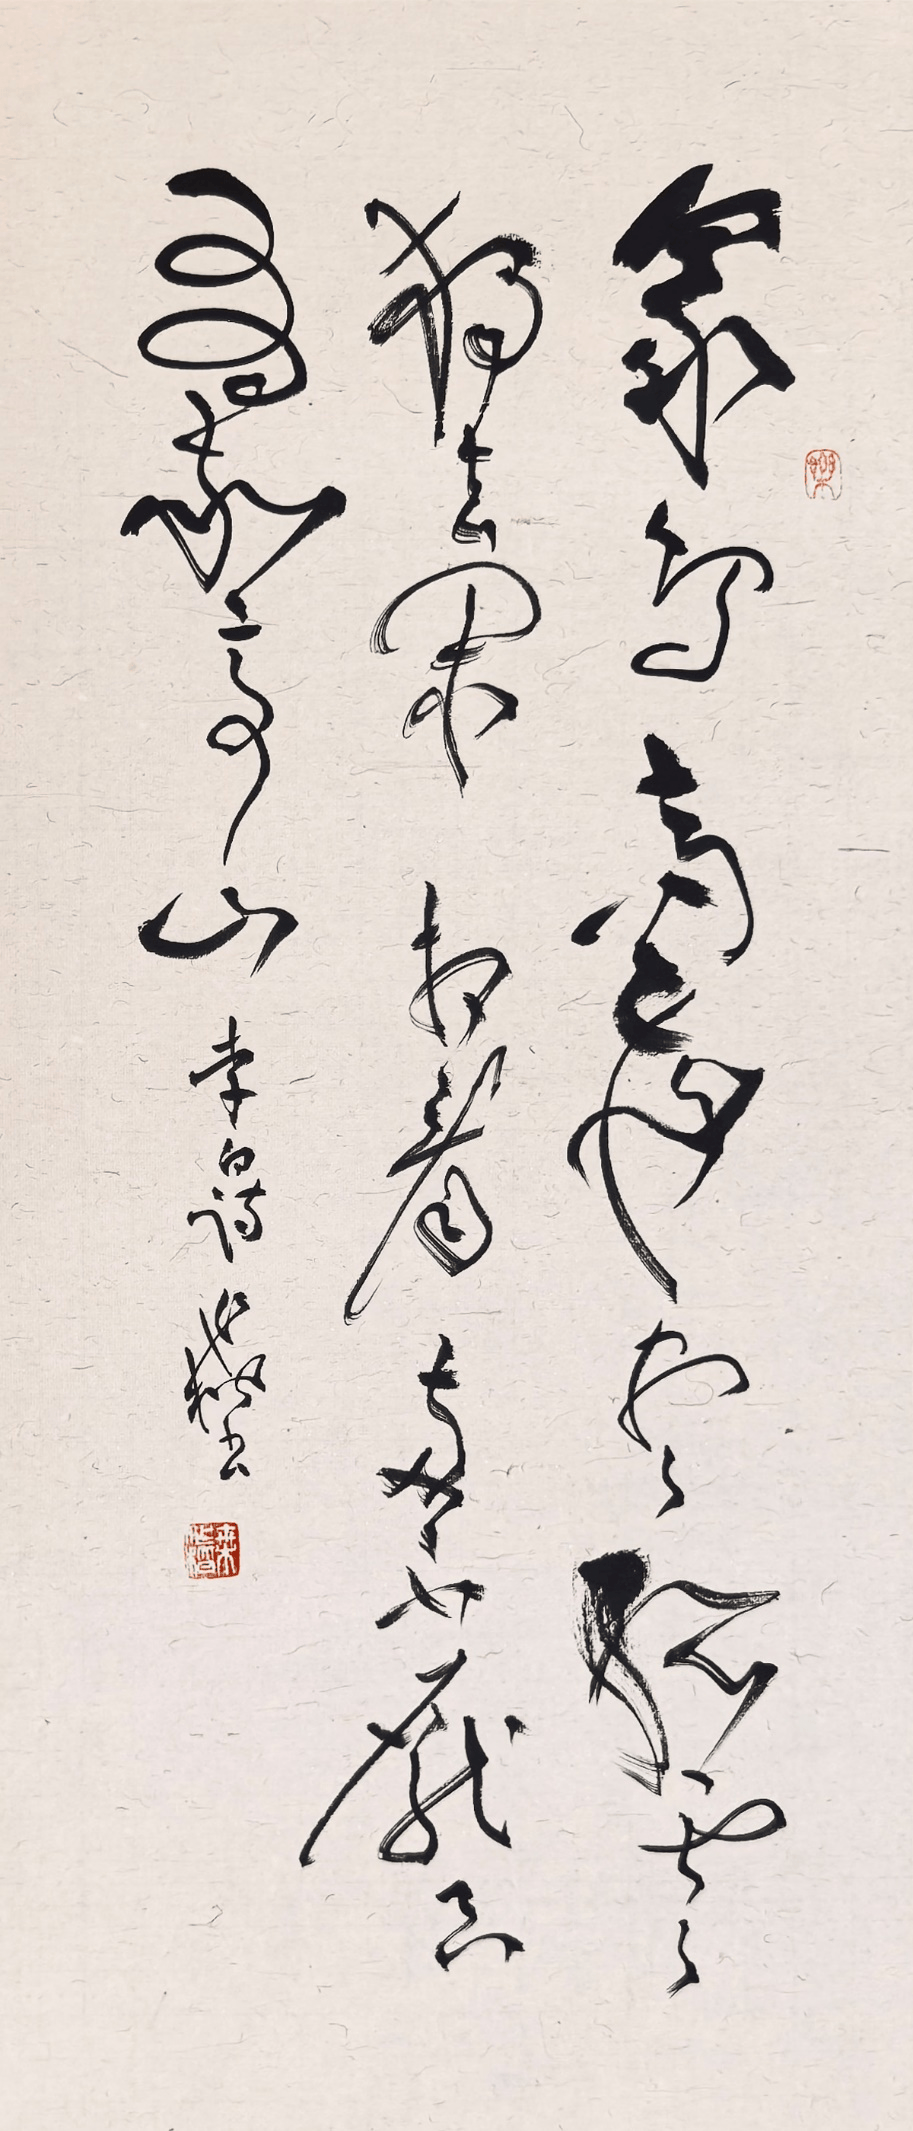 眾鳥高飛盡孤雲
獨去閑相看兩不厭只
有敬亭山 李白詩 書